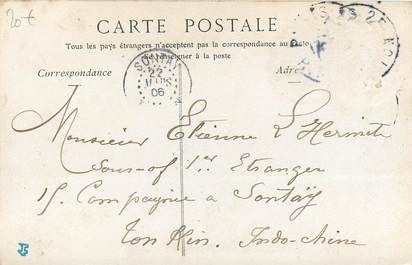 20 €
CARTE POSTALE
Tous les pays étrangers n'acceptent pas la correspondance au recto
se renseigner à la poste
Correspondance
22
06
Monsieur Etienne L'Hermite
Sous-of 1er Etranger
15 Compagnie à Sontaÿ
Tonkin. Indo-chine